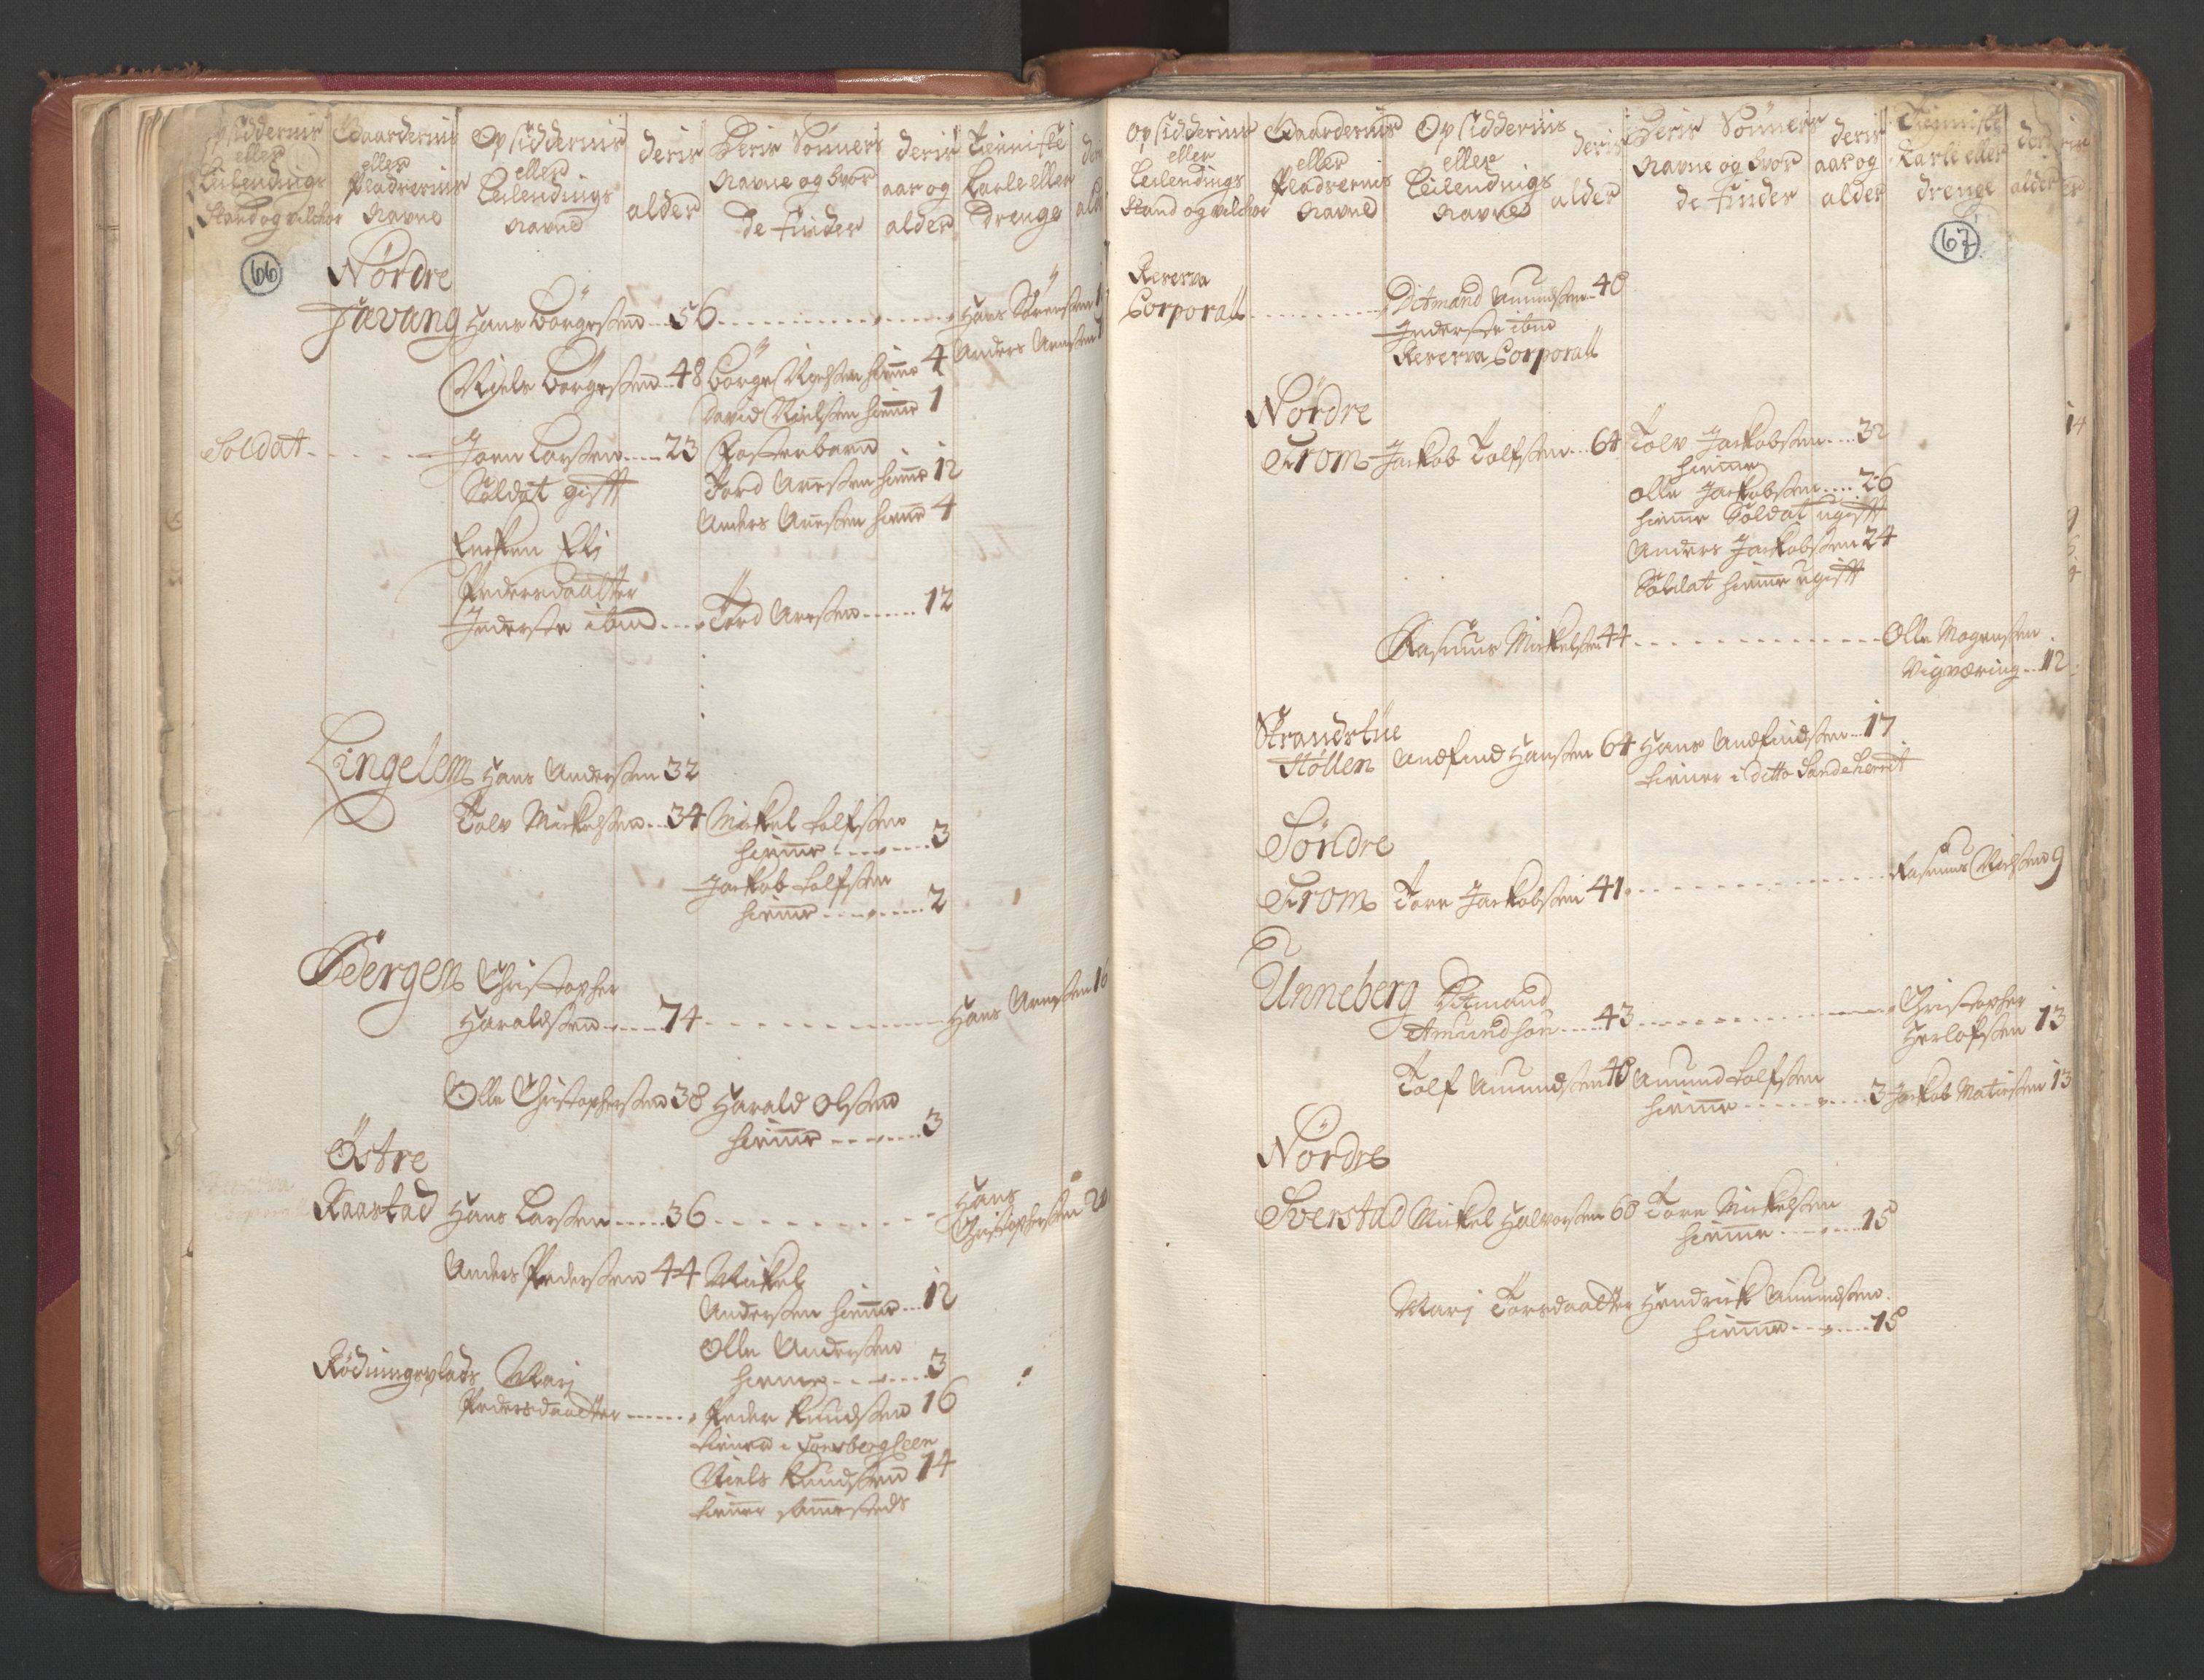 Opsiddernis
eller
Leilendings
Stand og vilchor
Gaardernis
eller
Pladzernis
Navne
Opsiddernis
eller
Leilendings
Navne
deris
alder
Deris Sönners
Navne og hvor
de finder
deris
aar og
alder
Tienniste
Karle eller
drenge
66
Nordre
Javang Hans Börgesen 56 Hans Sörensen
Anders Arnesen
Niels Börgesen 48 Börge Nielsen hiemme 4
David Nielsen hiemme 1
Soldat Joen Larsen 23 Fosterbarn
Soldat gifft Tord Aresen hiemme 12
Anders Aresen hiemme 4
Encken Eli
Pedersdaatter
Inderste ibid Tord Aresen 12
Lingelem Hans Andersen 32
Tolv Mickelsen 34 Mickel Tolfsen
hiemme 3
Jackob Tolfsen
hiemme 2
Bergen Christopher
Haraldsen 74 Hans Arnesen 16
Olle Christophersen 38 Harald Olsen
hiemme 3
Östre
Raastad Hans Larsen 36 Hans
Christophersen 20
Anders Pedersen 44 Mickel
Andersen hiemme 12
Olle Andersen
hiemme 3
Rödningsplads Mari
Pedersdaatter Peder Knudsen 16
tienner i Tonsberg Leen
Niels Knudsen 14
tienner sammesteds
Opsiddernis
eller
Leilendings
Stand og vilchor
Gaardernis
eller
Pladzernis
Navne
Opsiddernis
eller
Leilendings
Navne
deris
alder
Deris Sönners
Navne og hvor
de finder
deris
aar og
alder
Tienniste
Karle eller
drenge
deris
alder
67
Reserva
Corporall Ditmand Amundsen 40
Inderste ibid
Reserva Corporall
Nordre
From Jackob Tolfsen 64 Tolv Jackobsen 32
hiemme
Olle Jackobsen 26
hiemme Soldat ugifft
Anders Jackobsen 24
Soldat hiemme ugifft
Rasmus Mickelsen 44 Olle Mogensen
Vigværing 12
Strandstue
Höllen Andfind Hansen 64 Hans Andfindsen 17
tienner i ditto Sandeherrit
Söndre
From Tore Jackobsen 41 Rasmus Nielsen 9
Unneberg Ditmand
Amundsön 43 Christopher
Herlofsen 13
Tolf Amundsen 40 Amund Tolfsen
hiemme 3 Jackob Matisen 13
Nordre
Sverstad Mickel Halvorsen 60 Tore Mickelsen
hiemme 15
Mari Torsdaatter Hendrick Amundsen
hiemme 15